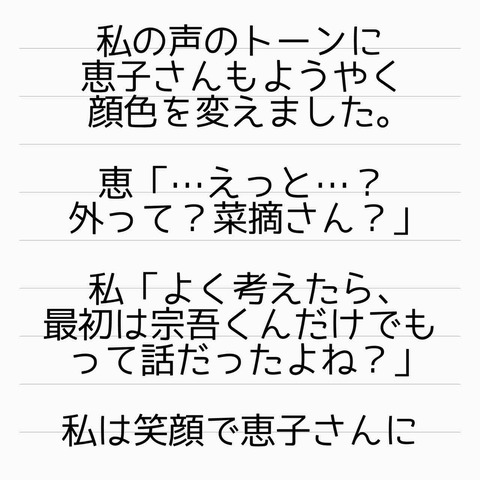 私の声のトーンに
恵子さんもようやく
顔色を変えました。
恵「…えっと…？
外って？菜摘さん？」
私「よく考えたら、
最初は宗吾くんだけでも
って話だったよね？」
私は笑顔で恵子さんに